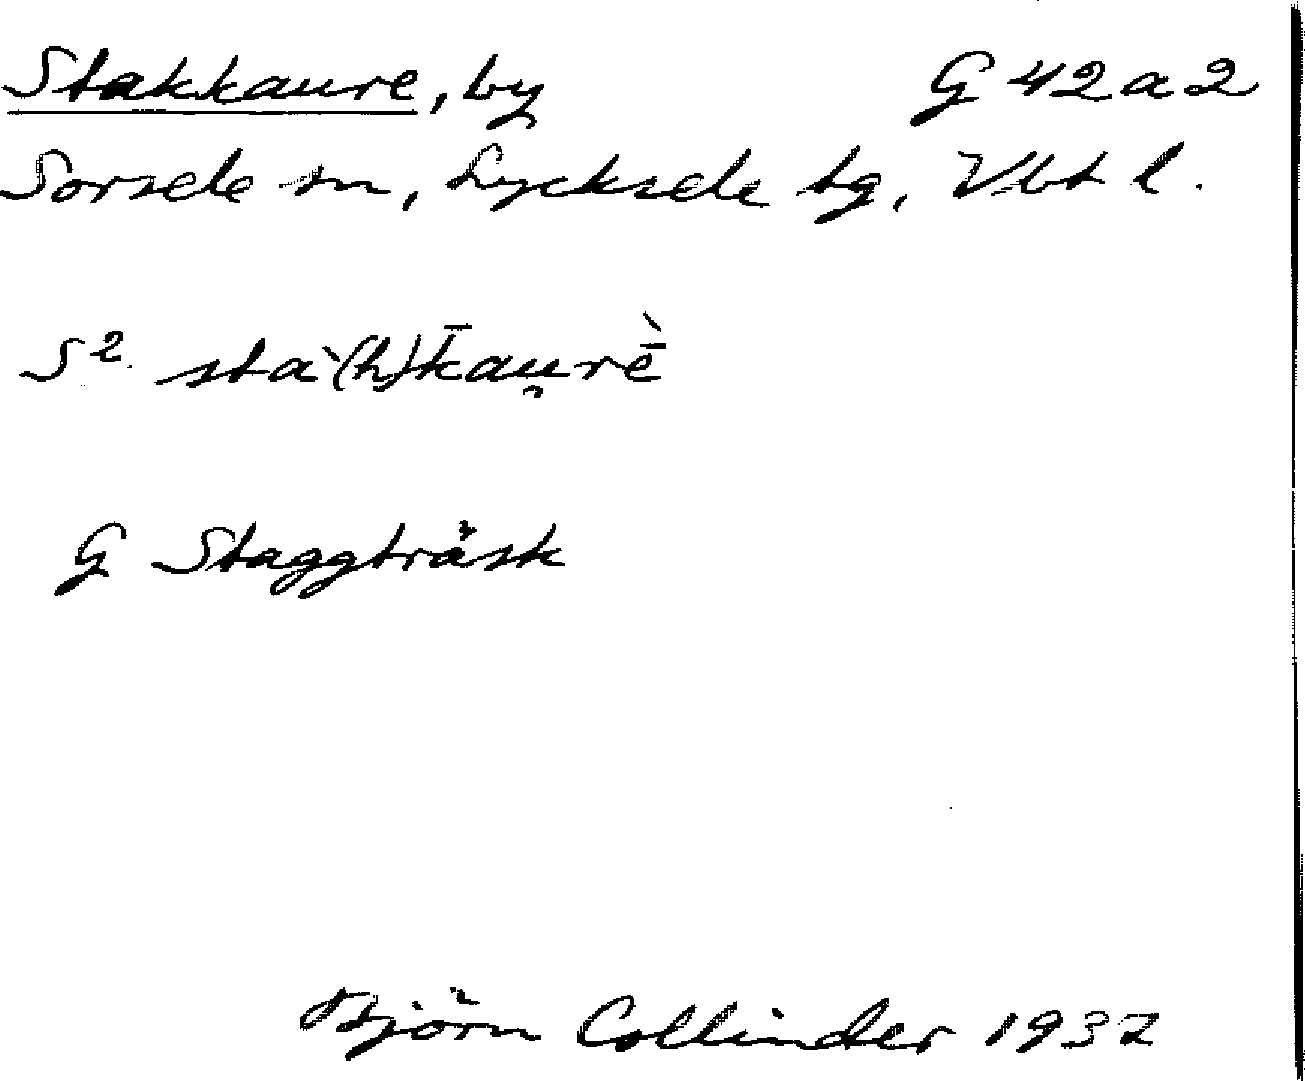 Stakkaure, by G 42 a 2
Sorsele sn, Lycksele tg, Vbt l.
S². stà(h)k̄au̯rḕ
G Staggträsk
Björn Collinder 1937